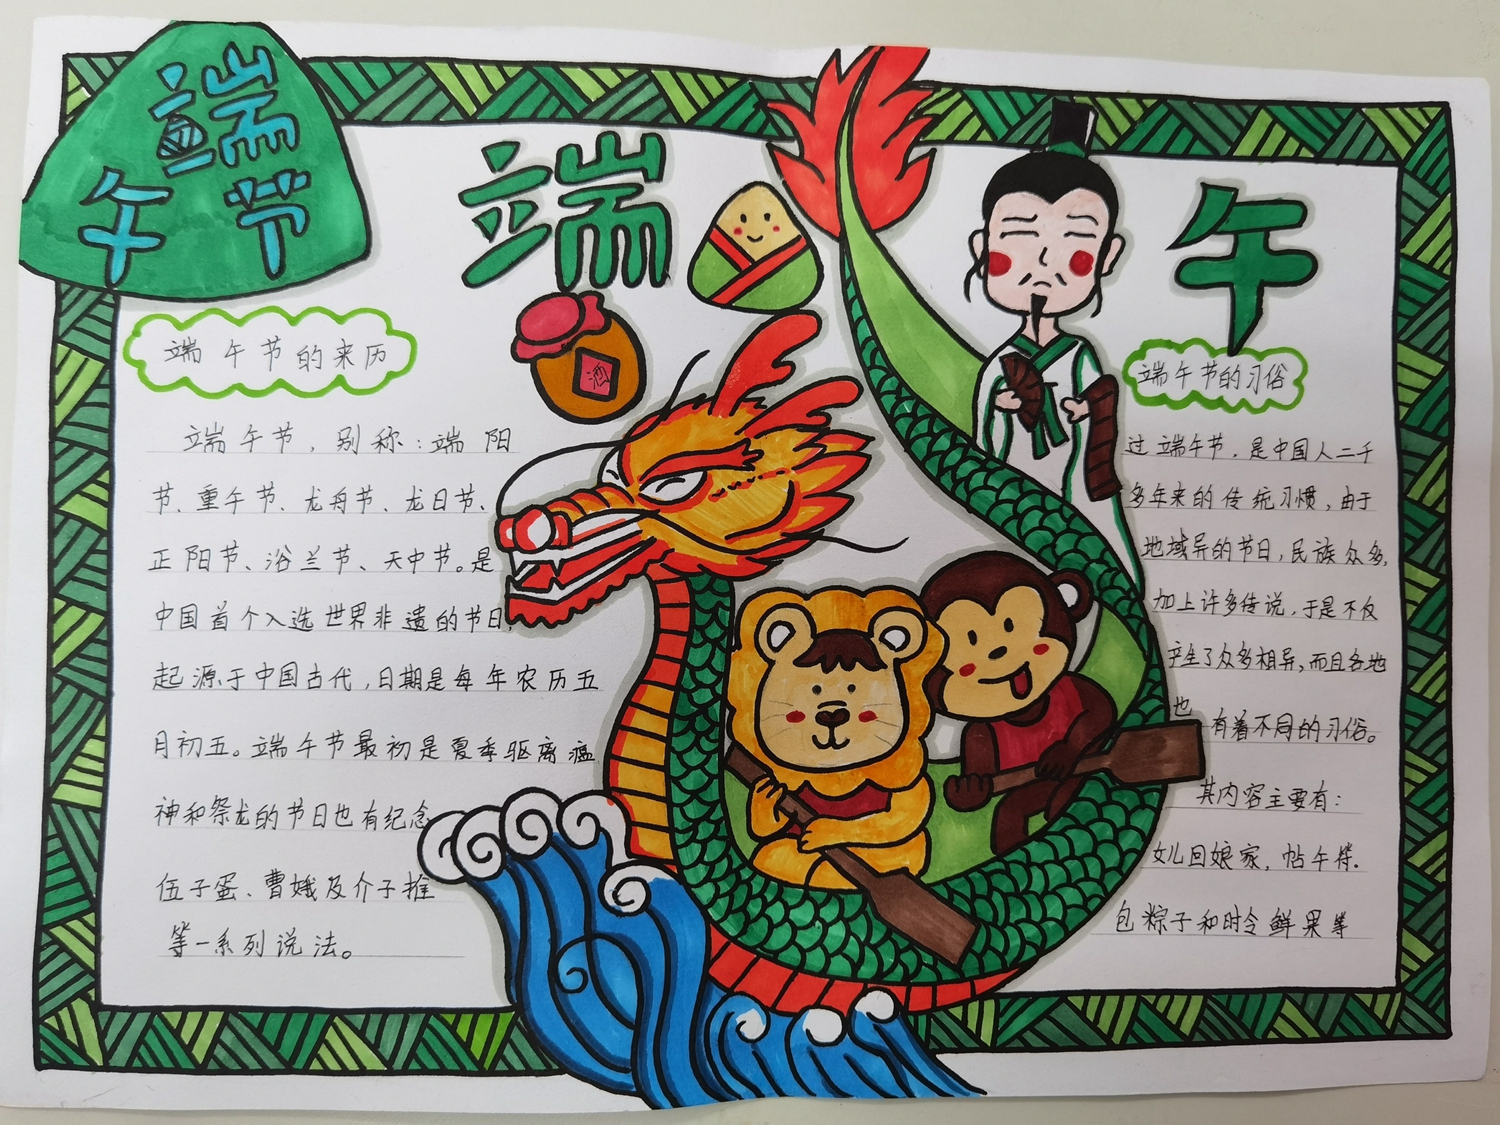 端
午节
端
午
酒
端午节的来历
端午节，别称：端阳
节、重午节、龙舟节、龙日节、
正阳节、浴兰节、天中节。是
中国首个入选世界非遗的节日，
起源于中国古代，日期是每年农历五
月初五。端午节最初是夏季驱离瘟
神和祭龙的节日也有纪念
伍子蛋、曹娥及介子推
等一系列说法。
端午节的习俗
过端午节，是中国人二千
多年来的传统习惯，由于
地域异的节日，民族众多，
加上许多传说，于是不仅
产生了众多相异，而且各地
也有着不同的习俗。
其内容主要有：
女儿回娘家，帖午符.
包粽子和时令鲜果等